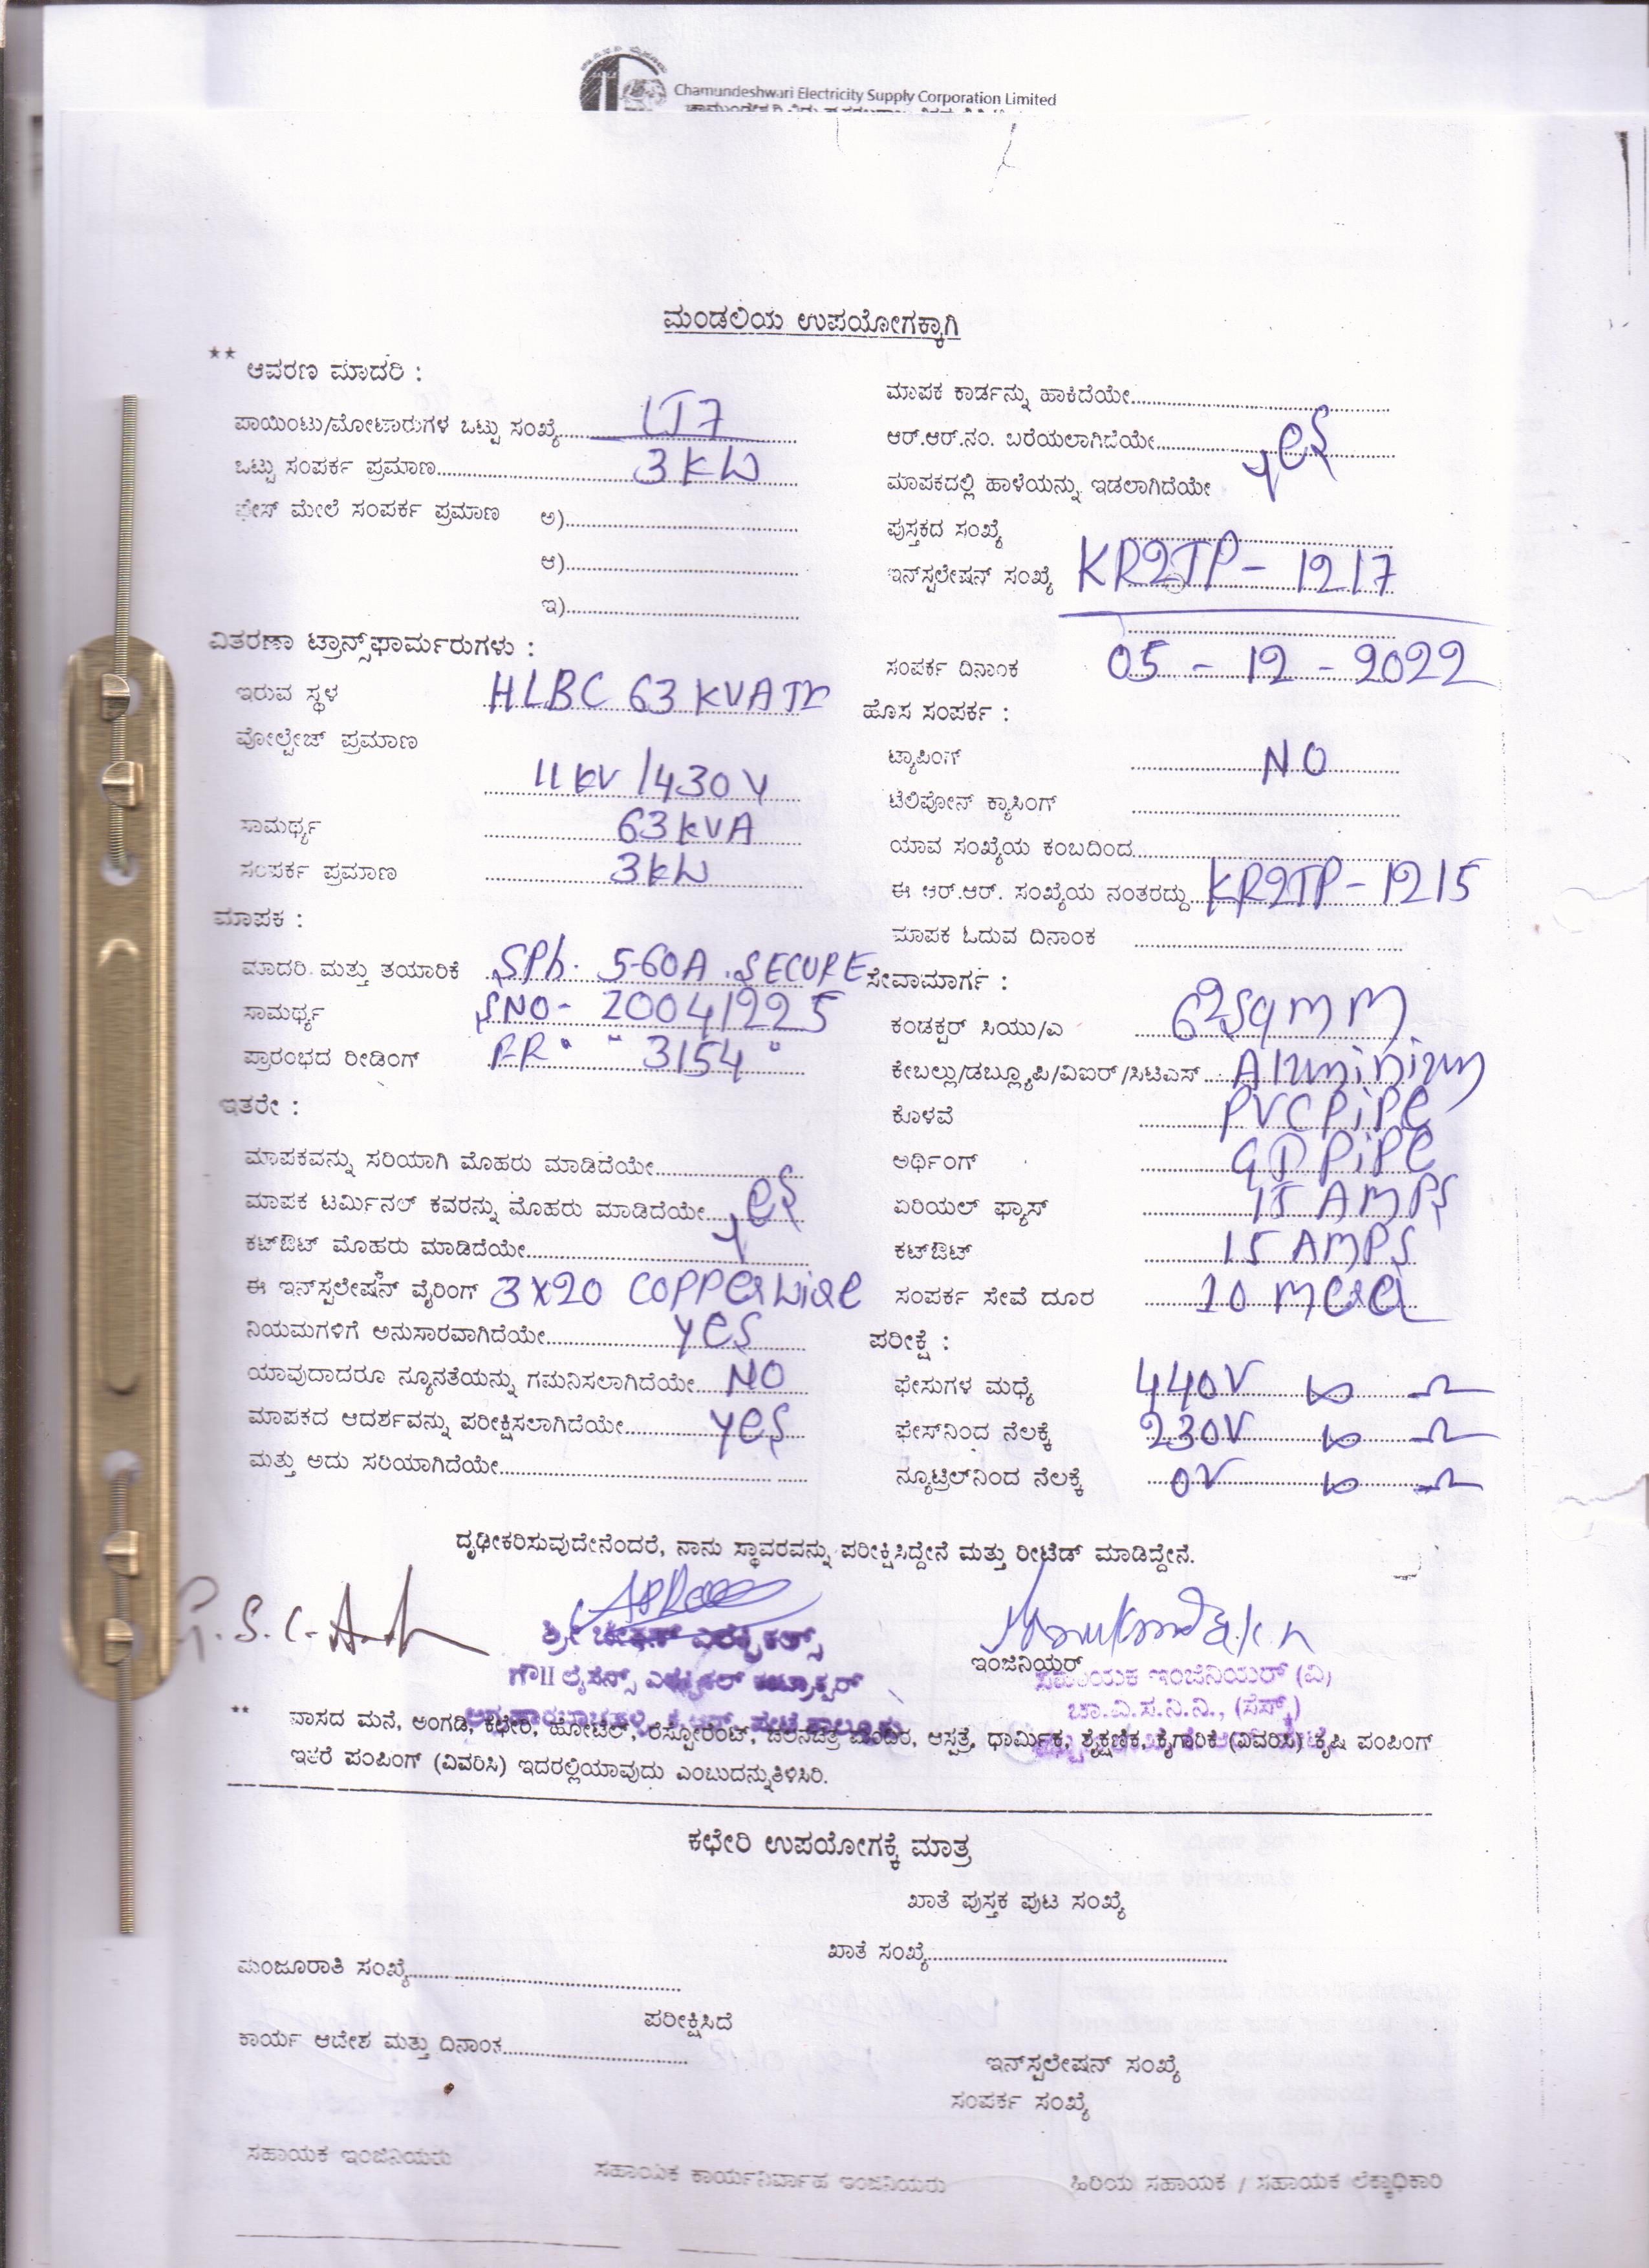 Chamundeshwari Electricity Supply Corporation Limited
ಮಂಡಲಿಯ ಉಪಯೋಗಕ್ಕಾಗಿ
** ಆವರಣ ಮಾದರಿ :
ಪಾಯಿಂಟು/ಮೋಟಾರುಗಳ ಒಟ್ಟು ಸಂಖ್ಯೆ LT7
ಒಟ್ಟು ಸಂಪರ್ಕ ಪ್ರಮಾಣ 3KW
ಫೇಸ್ ಮೇಲೆ ಸಂಪರ್ಕ ಪ್ರಮಾಣ ಅ)
ಆ)
ಇ)
ವಿತರಣಾ ಟ್ರಾನ್ಸ್‌ಫಾರ್ಮರುಗಳು :
ಇರುವ ಸ್ಥಳ HLBC 63 KVA Tr
ವೋಲ್ಟೇಜ್ ಪ್ರಮಾಣ
11 KV /430 V
ಸಾಮರ್ಥ್ಯ 63 KVA
ಸಂಪರ್ಕ ಪ್ರಮಾಣ 3KW
ಮಾಪಕ :
ಮಾದರಿ ಮತ್ತು ತಯಾರಿಕೆ SPh. 5-60A SECURE
ಸಾಮರ್ಥ್ಯ SNO- 20041225
ಪ್ರಾರಂಭದ ರೀಡಿಂಗ್ 3154
ಇತರೇ :
ಮಾಪಕವನ್ನು ಸರಿಯಾಗಿ ಮೊಹರು ಮಾಡಿದೆಯೇ
ಮಾಪಕ ಟರ್ಮಿನಲ್ ಕವರನ್ನು ಮೊಹರು ಮಾಡಿದೆಯೇ yes
ಕಟ್‌ಔಟ್ ಮೊಹರು ಮಾಡಿದೆಯೇ
ಈ ಇನ್‌ಸ್ಟಲೇಷನ್ ವೈರಿಂಗ್ 3X20 COPPER Wire
ನಿಯಮಗಳಿಗೆ ಅನುಸಾರವಾಗಿದೆಯೇ yes
ಯಾವುದಾದರೂ ನ್ಯೂನತೆಯನ್ನು ಗಮನಿಸಲಾಗಿದೆಯೇ NO
ಮಾಪಕದ ಆದರ್ಶವನ್ನು ಪರೀಕ್ಷಿಸಲಾಗಿದೆಯೇ yes
ಮತ್ತು ಅದು ಸರಿಯಾಗಿದೆಯೇ
ಮಾಪಕ ಕಾರ್ಡನ್ನು ಹಾಕಿದೆಯೇ
ಆರ್.ಆರ್.ನಂ. ಬರೆಯಲಾಗಿದೆಯೇ yes
ಮಾಪಕದಲ್ಲಿ ಹಾಳೆಯನ್ನು ಇಡಲಾಗಿದೆಯೇ
ಪುಸ್ತಕದ ಸಂಖ್ಯೆ
ಇನ್‌ಸ್ಟಲೇಷನ್ ಸಂಖ್ಯೆ KR2TP- 1217
ಸಂಪರ್ಕ ದಿನಾಂಕ 05 - 12 - 2022
ಹೊಸ ಸಂಪರ್ಕ :
ಟ್ಯಾಪಿಂಗ್ NO
ಟೆಲಿಫೋನ್ ಕ್ಯಾಸಿಂಗ್
ಯಾವ ಸಂಖ್ಯೆಯ ಕಂಬದಿಂದ
ಈ ಆರ್.ಆರ್. ಸಂಖ್ಯೆಯ ನಂತರದ್ದು KR2TP-1215
ಮಾಪಕ ಓದುವ ದಿನಾಂಕ
ಸೇವಾಮಾರ್ಗ :
ಕಂಡಕ್ಟರ್ ಸಿಯು/ಎ sqmm
ಕೇಬಲ್ಲು/ಡಬ್ಲ್ಯೂಪಿ/ವಿಐರ್/ಸಿಟಿಎಸ್ Aluminium
ಕೊಳವೆ PVC PiPe
ಅರ್ಥಿಂಗ್ GI PiPe
ಏರಿಯಲ್ ಫ್ಯೂಸ್ 15 AMPS
ಕಟ್‌ಔಟ್ 15 AMPS
ಸಂಪರ್ಕ ಸೇವೆ ದೂರ 10
ಪರೀಕ್ಷೆ :
ಫೇಸುಗಳ ಮಧ್ಯೆ 440V ∞ Ω
ಫೇಸ್‌ನಿಂದ ನೆಲಕ್ಕೆ 230V ∞ Ω
ನ್ಯೂಟ್ರಲ್‌ನಿಂದ ನೆಲಕ್ಕೆ 0V ∞ Ω
ದೃಢೀಕರಿಸುವುದೇನೆಂದರೆ, ನಾನು ಸ್ಥಾವರವನ್ನು ಪರೀಕ್ಷಿಸಿದ್ದೇನೆ ಮತ್ತು ರೀಟೆಡ್ ಮಾಡಿದ್ದೇನೆ.
ಇಂಜಿನಿಯರ್
ಸಹಾಯಕ ಇಂಜಿನಿಯರ್ (ವಿ)
ಚಾ.ವಿ.ಸ.ನಿ.ನಿ., (ಸೆಸ್ಕ್)
** ವಾಸದ ಮನೆ, ಅಂಗಡಿ, ಕಛೇರಿ, ಹೋಟೆಲ್, ರೆಸ್ಟೋರೆಂಟ್, ಚಲನಚಿತ್ರ ಮಂದಿರ, ಆಸ್ಪತ್ರೆ, ಧಾರ್ಮಿಕ, ಶೈಕ್ಷಣಿಕ, ಕೈಗಾರಿಕೆ (ವಿವರಿಸಿ) ಕೃಷಿ ಪಂಪಿಂಗ್
ಇತರೆ ಪಂಪಿಂಗ್ (ವಿವರಿಸಿ) ಇದರಲ್ಲಿಯಾವುದು ಎಂಬುದನ್ನುತಿಳಿಸಿರಿ.
ಕಛೇರಿ ಉಪಯೋಗಕ್ಕೆ ಮಾತ್ರ
ಖಾತೆ ಪುಸ್ತಕ ಪುಟ ಸಂಖ್ಯೆ
ಖಾತೆ ಸಂಖ್ಯೆ
ಮಂಜೂರಾತಿ ಸಂಖ್ಯೆ
ಪರೀಕ್ಷಿಸಿದೆ
ಕಾರ್ಯ ಆದೇಶ ಮತ್ತು ದಿನಾಂಕ
ಇನ್‌ಸ್ಟಲೇಷನ್ ಸಂಖ್ಯೆ
ಸಂಪರ್ಕ ಸಂಖ್ಯೆ
ಸಹಾಯಕ ಇಂಜಿನಿಯರು
ಸಹಾಯಕ ಕಾರ್ಯನಿರ್ವಾಹ ಇಂಜಿನಿಯರು
ಹಿರಿಯ ಸಹಾಯಕ / ಸಹಾಯಕ ಲೆಕ್ಕಾಧಿಕಾರಿ